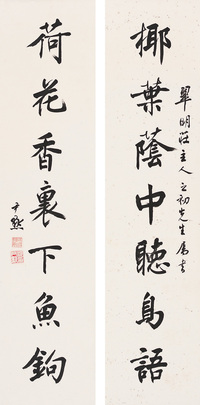 椰葉蔭中聽鳥語
翠明莊主人立初先生屬書
荷花香裏下魚鉤
尹默